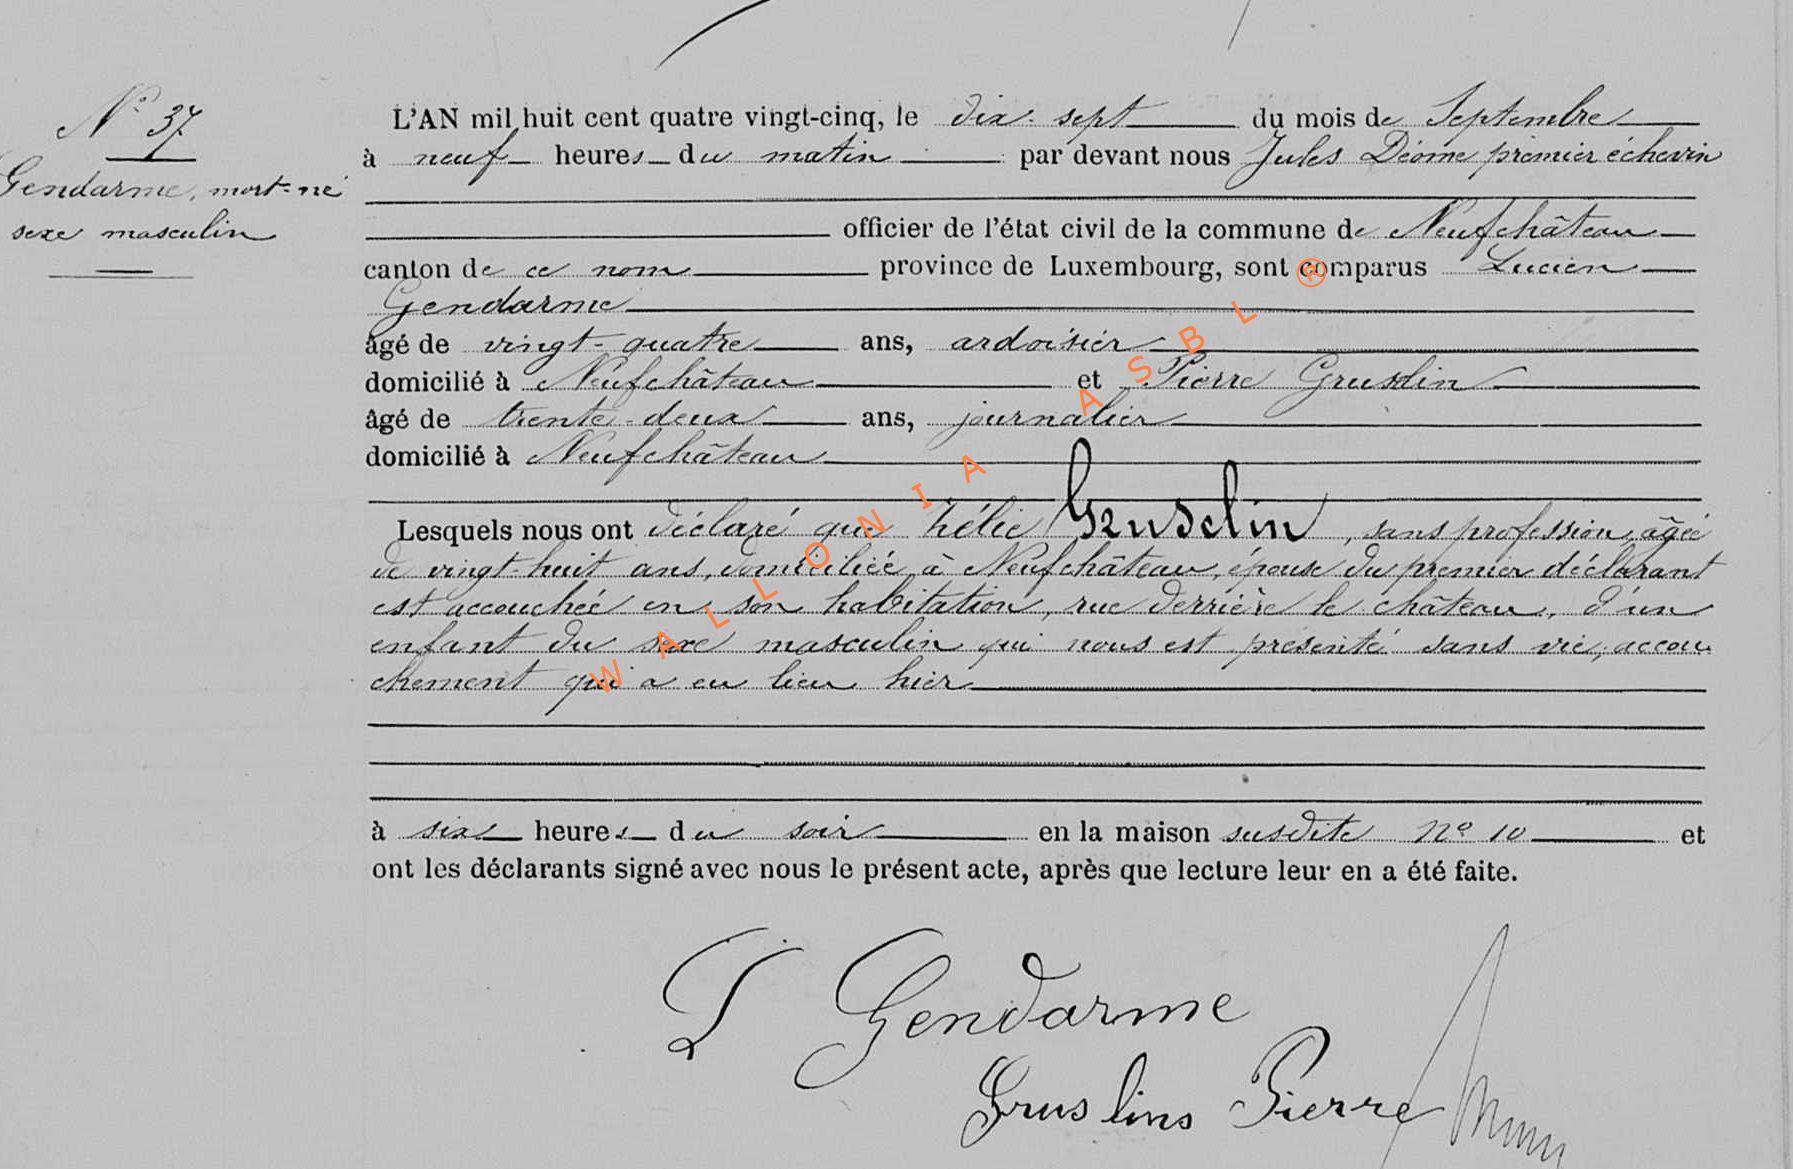 N° 37
Gendarme, mort-né
sexe masculin
L'AN mil huit cent quatre vingt-cinq, le dix-sept du mois de Septembre
à neuf heures du matin par devant nous Jules Déome premier échevin
officier de l'état civil de la commune de Neufchâteau
canton de ce nom province de Luxembourg, sont comparus Lucien
Gendarme
âgé de vingt-quatre ans, ardoisier
domicilié à Neufchâteau et Pierre Gruslin
âgé de trente-deux ans, journalier
domicilié à Neufchâteau
Lesquels nous ont déclaré que hélie Gruselin, sans profession, âgée
de vingt-huit ans, domiciliée à Neufchâteau, épouse du premier déclarant
est accouchée en son habitation, rue derrière le château, d'un
enfant du sexe masculin qui nous est présenté sans vie, accou
chement qui a eu lieu hier
à six heures du soir en la maison susdite n° 10 et
ont les déclarants signé avec nous le présent acte, après que lecture leur en a été faite.
L Gendarme
Gruslins Pierre
WALLONIA ASBL ®